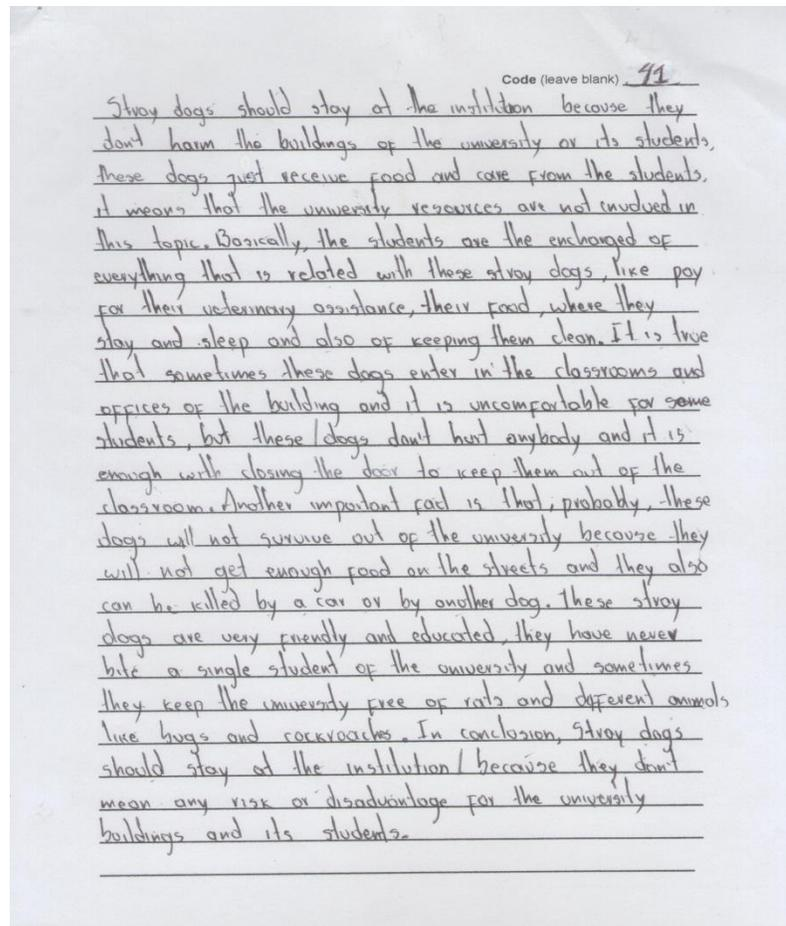 Code (leave blank) 41
Stray dogs should stay at the institution because they
don't harm the buildings of the university or its students,
these dogs just receive food and care from the students,
it means that the university resources are not involved in
this topic. Basically, the students are the encharged of
everything that is related with these stray dogs, like pay
for their veterinary assistance, their food, where they
stay and sleep and also of keeping them clean. It is true
that sometimes these dogs enter in the classrooms and
offices of the building and it is uncomfortable for some
students, but these dogs don't hurt anybody and it is
enough with closing the door to keep them out of the
classroom. Another important fact is that, probably, these
dogs will not survive out of the university because they
will not get enough food on the streets and they also
can be killed by a car or by another dog. These stray
dogs are very friendly and educated, they have never
bite a single student of the university and sometimes
they keep the university free of rats and different animals
like bugs and cockroaches. In conclusion, Stray dogs
should stay at the institution because they don't
mean any risk or disadvantage for the university
buildings and its students.